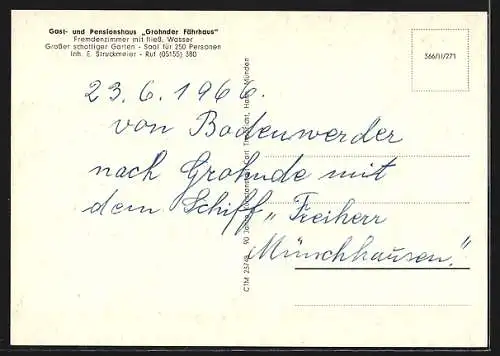 Gast- und Pensionshaus „Grohnder Fährhaus"
Fremdenzimmer mit fließ. Wasser
Großer schattiger Garten - Saal für 250 Personen
Inh. E. Struckmeier - Ruf (05155) 380
366/II/271
23.6.1966.
von Bodenwerder
nach Grohnde mit
dem Schiff „Freiherr
Münchhausen."
CTM 23749 90 Jahre Carl Hann. Münden